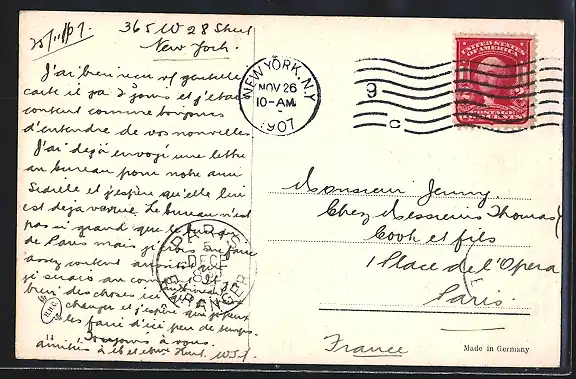 25/11/07.
365 W 28 Street
New York.
J'ai bien reçu vf gentille
carte il ya 2 jours et j'étais
content comme toujours
d'entendre de vos nouvelles
J'ai dejà envoyé une lettre
au bureau pour notre ami
et j'espère qu'elle lui
est deja venue. Le bureau n'est
pas si grand que
de Paris mais je crois
assez content
je serais au
bien des choses ici
changer et j'espère que je peux
les faire d'ici peu de temps.
Toujours à vous.
amitiés à
NEW YORK, N.Y.
NOV 26
10-AM
1907
9
C
UNITED STATES
OF AMERICA
PARIS
5
DECE
ETRANGER
Monsieur Jenny.
Chez Messieurs Thomas
Cook et fils
1 Place de l'Opera
Paris.
France
Made in Germany